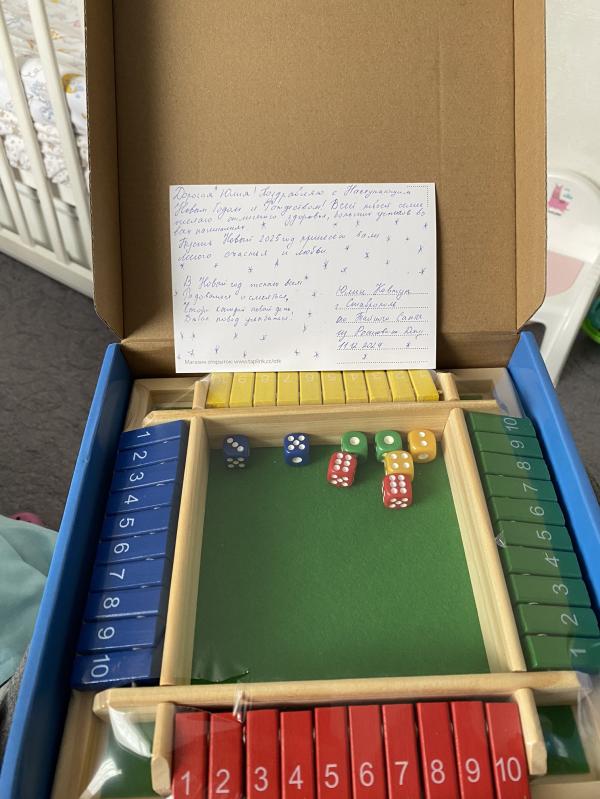 Дорогая Юлия! Поздравляю с Наступающим
Новым Годом и Рождеством! Всей твоей семье
желаю отличного здоровья, больших успехов во
всех начинаниях.
Пусть Новый 2025 год принесёт вам
много счастья и любви.
В Новый год желаю всем
Радоваться и смеяться,
Чтобы каждый новый день
Давал повод улыбаться!
Юлии
г. Ставрополь
от Тайного Санты
из Ростова н/Дону
11.12.2024
Магазин открыток: www.taplink.cc/otk
10 9 8 7 6 5 4 3 2 1
1
2
3
4
5
6
7
8
9
10
10
9
8
7
6
5
4
3
2
1
1 2 3 4 5 6 7 8 9 10